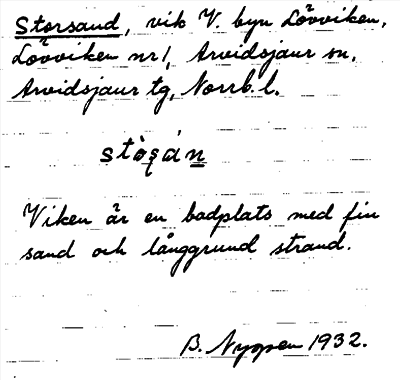 Storsand, vik V. byn Lövviken,
Lövviken nr 1, Arvidsjaur sn,
Arvidsjaur tg, Norrb. l.
Viken är en badplats med fin
sand och långgrund strand.
B. Nygren 1932.